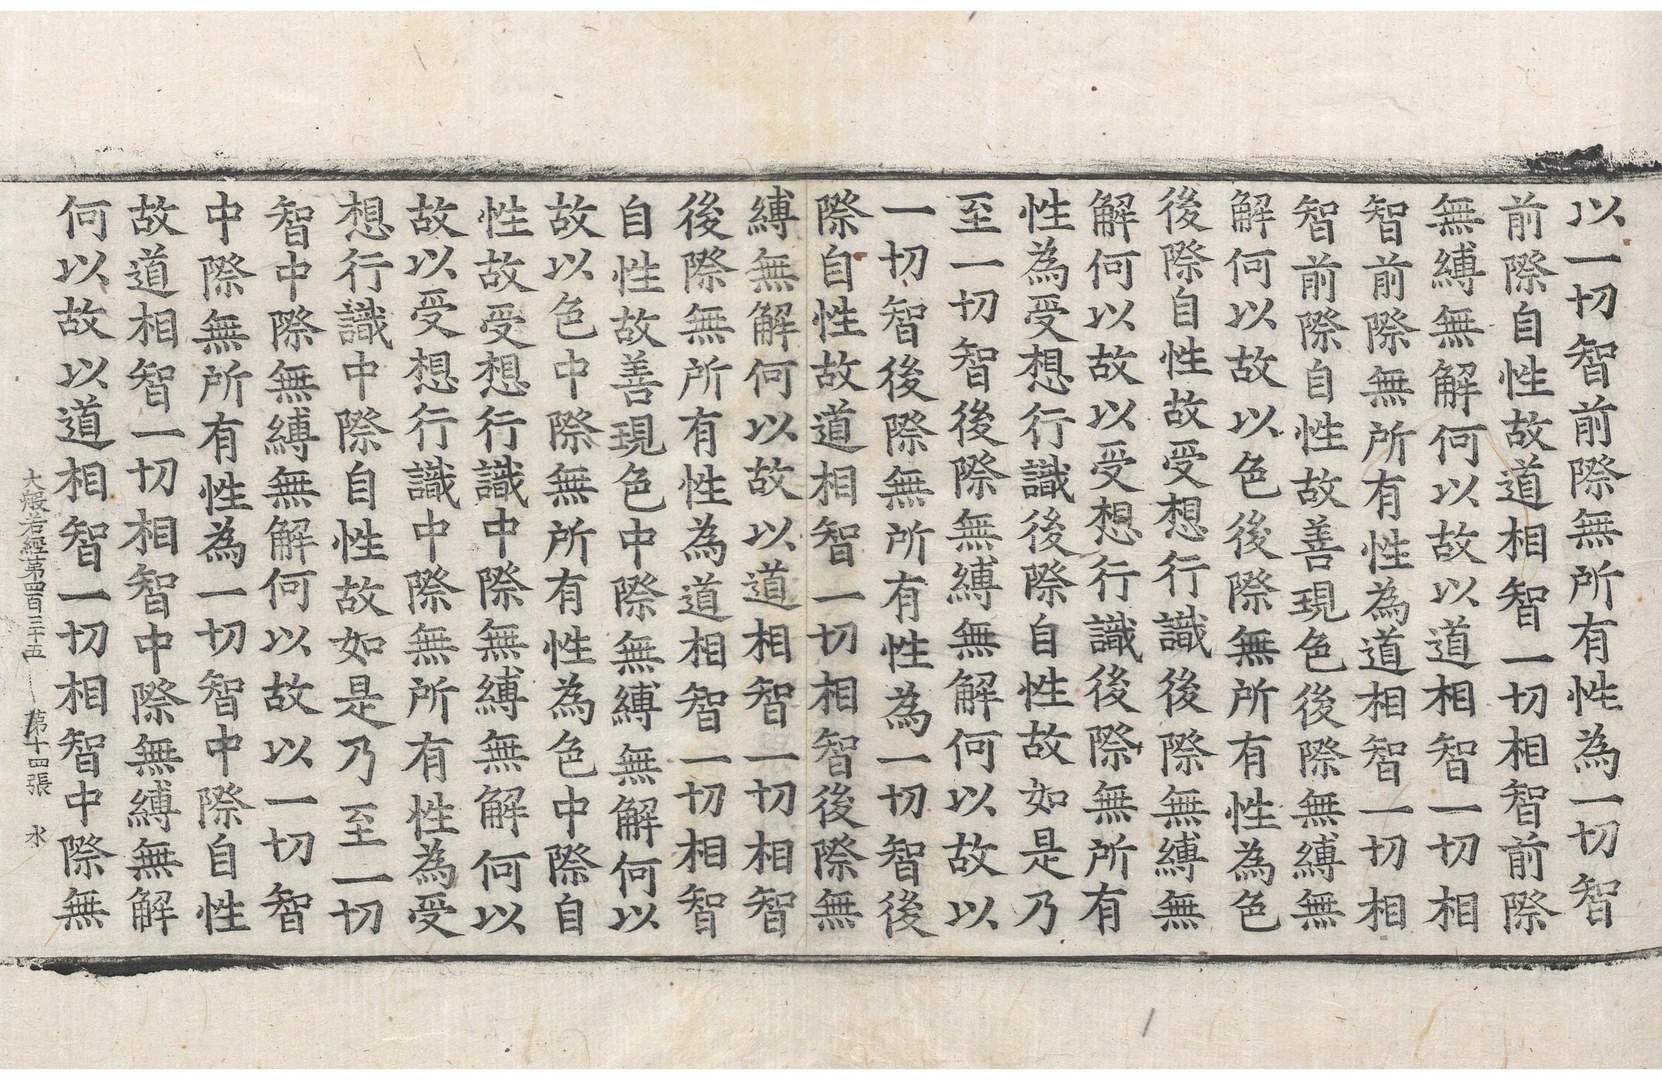 以一切智前際無所有性為一切智
前際自性故道相智一切相智前際
無縛無解何以故以道相智一切相
智前際無所有性為道相智一切相
智前際自性故善現色後際無縛無
解何以故以色後際無所有性為色
後際自性故受想行識後際無縛無
解何以故以受想行識後際無所有
性為受想行識後際自性故如是乃
至一切智後際無縛無解何以故以
一切智後際無所有性為一切智後
際自性故道相智一切相智後際無
縛無解何以故以道相智一切相智
後際無所有性為道相智一切相智
自性故善現色中際無縛無解何以
故以色中際無所有性為色中際自
性故受想行識中際無縛無解何以
故以受想行識中際無所有性為受
想行識中際自性故如是乃至一切
智中際無縛無解何以故以一切智
中際無所有性為一切智中際自性
故道相智一切相智中際無縛無解
何以故以道相智一切相智中際無
大般若經第四百三十五 第十四張 水